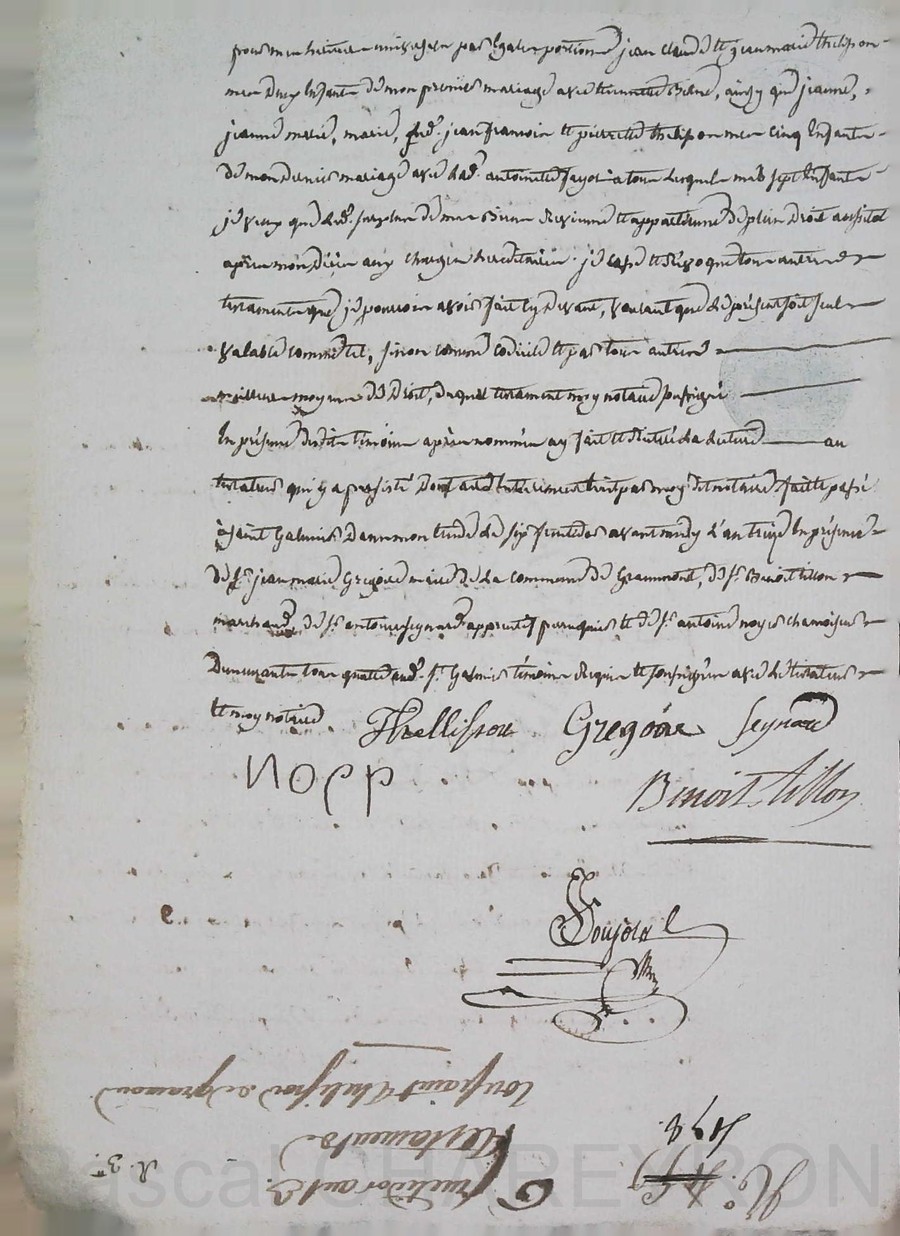 pour mes héritiers universels par égales portions jean claude et jean marie thelisson
mes deux Enfants de mon premier mariage avec, ainsy que jeanne,
jeanne marie, marie, jean francois et pierrette thelisson mes cinq Enfants
de mon dernier mariage avec lad. antoinette a tous lesquels mes sept Enfants
je veux que led. surplus de mes Biens devienne et appartienne de plein Droit aussitot
après mon Décès aux charges héréditaires. je casse et révoque tous autres
testaments que je pourrois avoir fait cy devant, voulant que le présent soit seul
valable comme tel, sinon comme codicile et par tous autres
meilleurs moyens de Droit, duquel testament moy notaire soussigné
En présence desdits témoins après nommés ay fait et réitéré la lecture au
testateur qui y a persisté Dont acte Entièrement Ecrit par moy dit notaire, fait et passé
à saint Galmier Dans mon Etude le six fructidor avant midy l'an treize En présence
de Sr. jean marie Gregoire maire de la commune de Grammont, de Sr. Benoit tillon
marchand, de Sr. antoine seynard apprentif perruquier et de Sr. antoine noyer chamoiseur
Demeurants tous quatre aud. St. Galmier témoins requis et soussignés avec le testateur
et moy notaire
Thellisson Gregoire Seynard
noer
Benoit tillon
toussaint thelisson de gramond
testament
6 fructidor an 13.
N.°